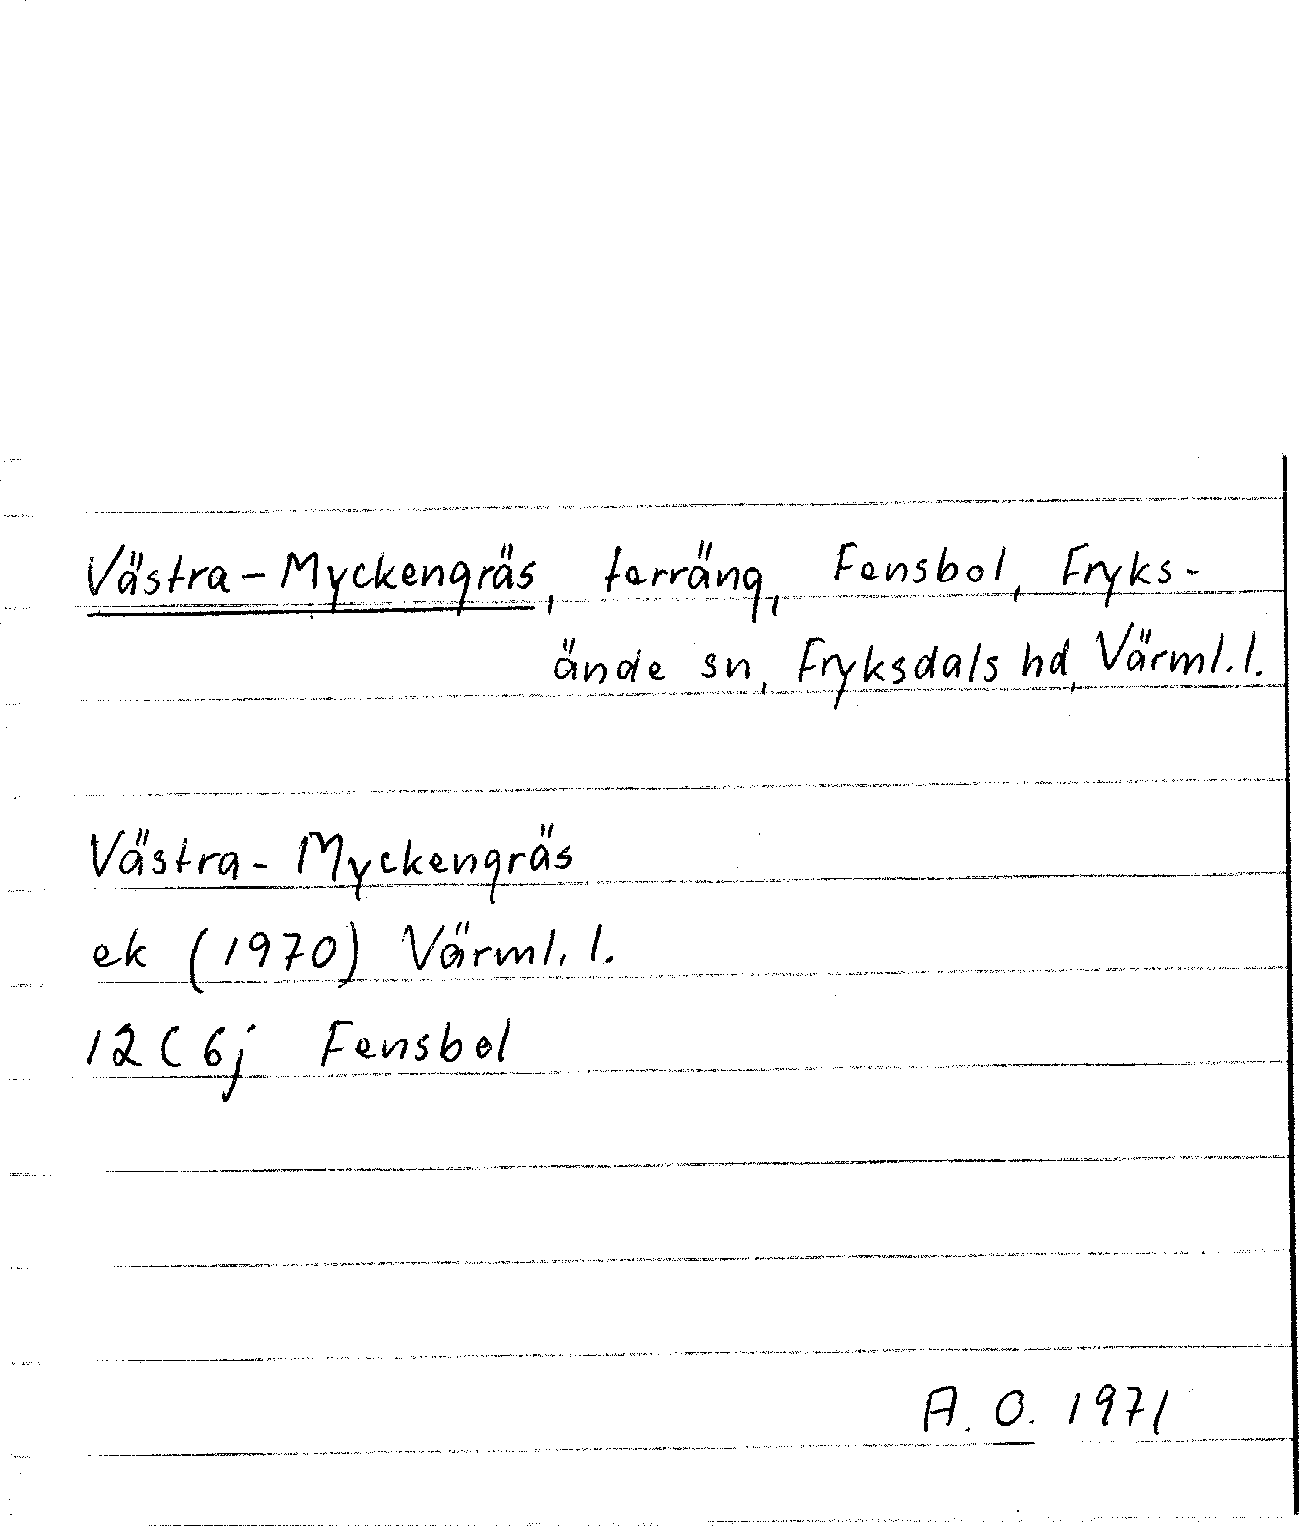 Västra-Myckengräs, terräng, Fensbol, Fryks-
ände sn, Fryksdals hd, Värml. l.
Västra-Myckengräs
ek (1970) Värml. l.
12C 6j Fensbol
A. O. 1971